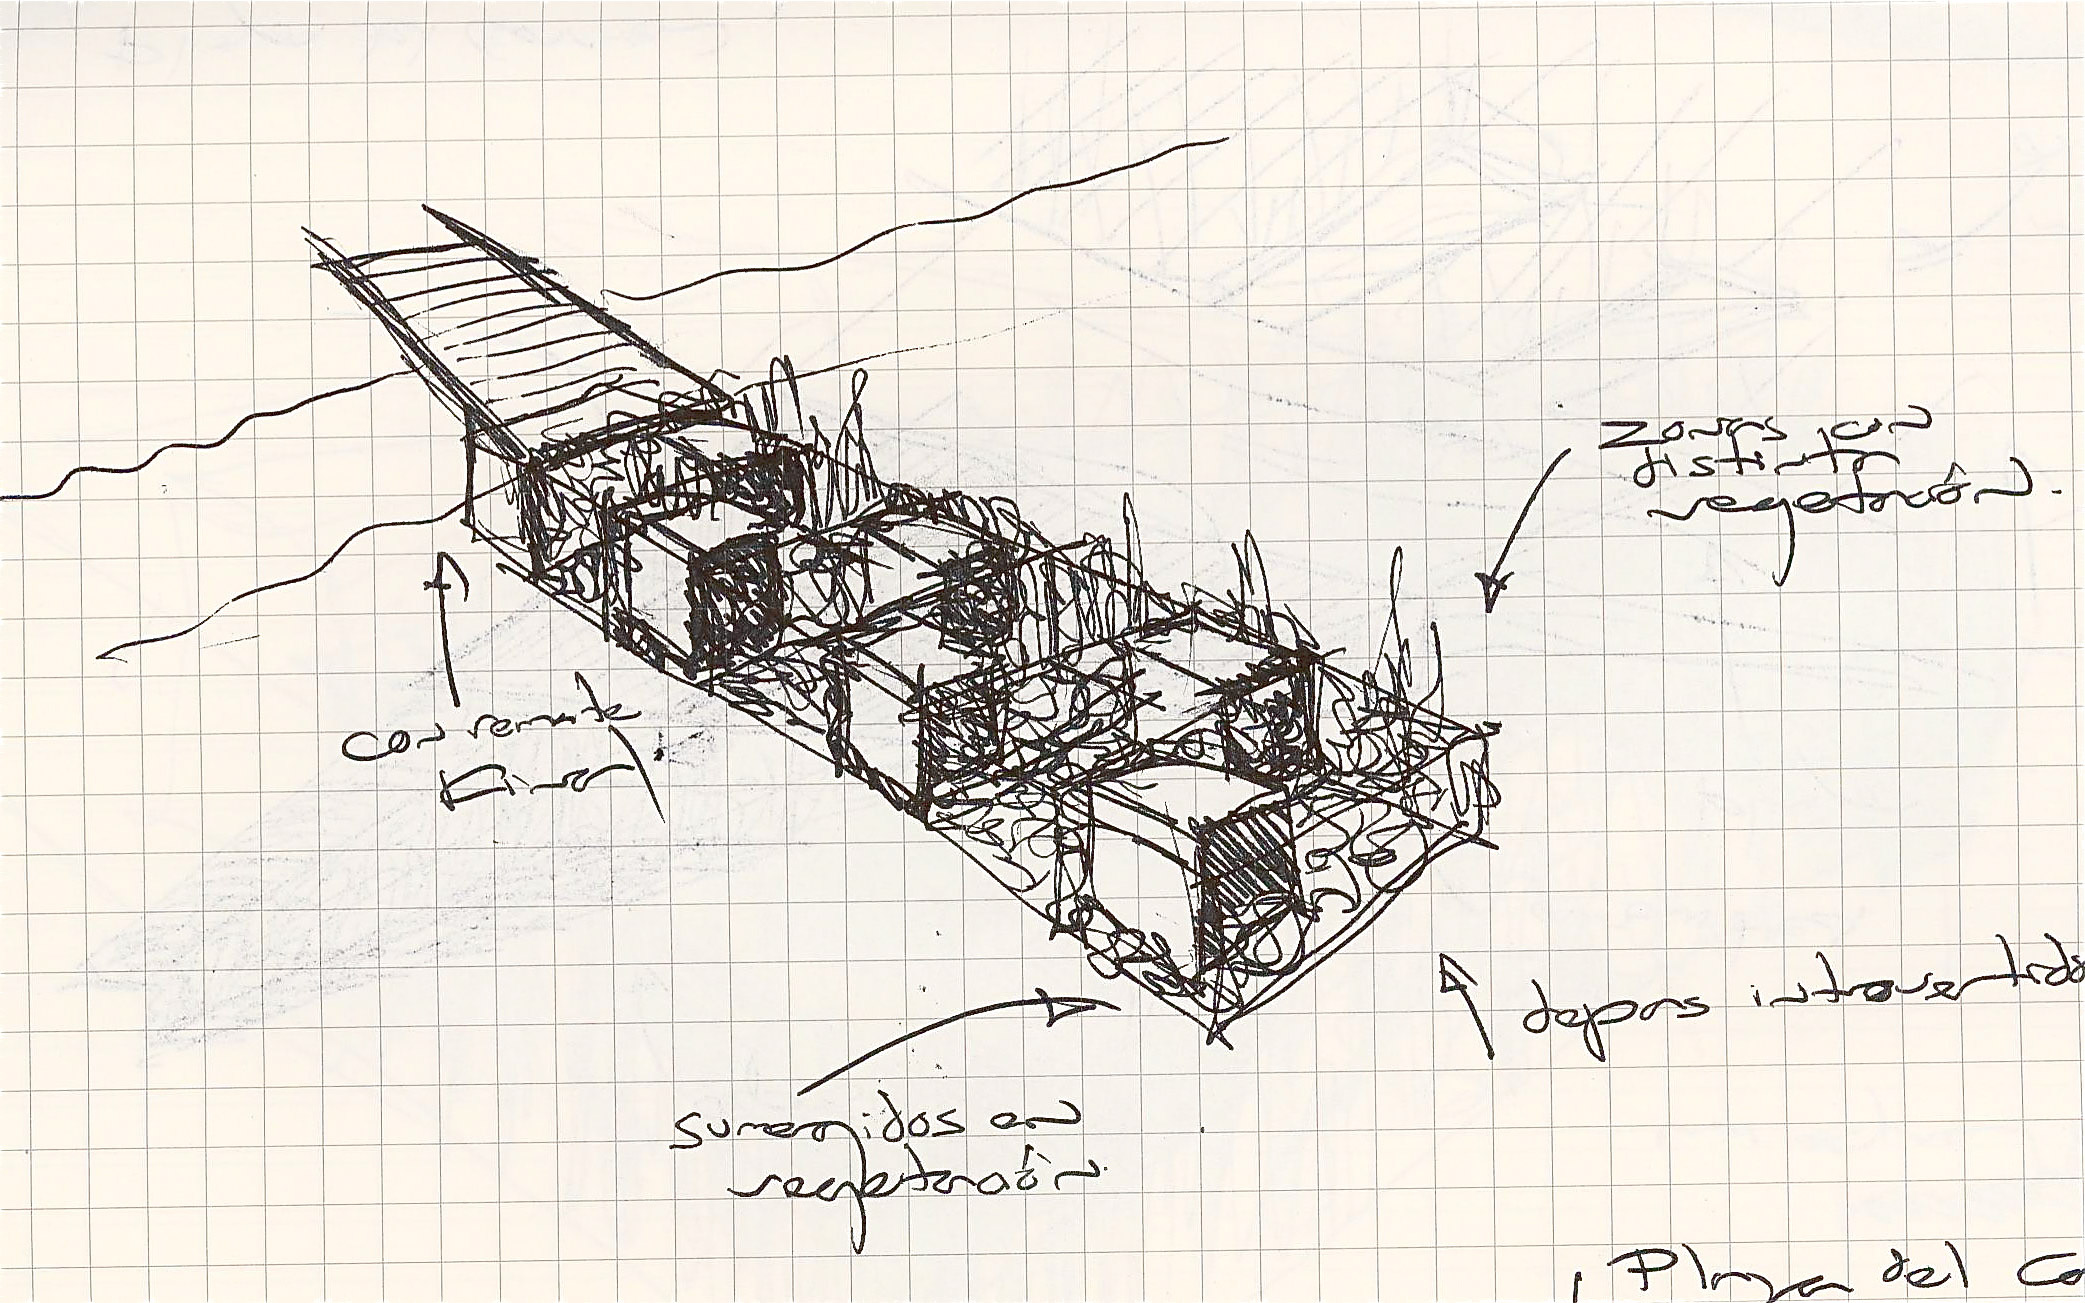 Zonas con
distinta
vegetación.
con remate
final
depas introvertido
sumergidos en
vegetación.
Playa del Ca